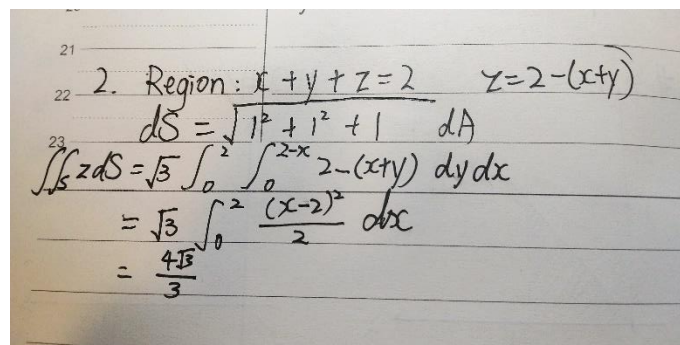 21
22 2. Region: x + y + z = 2 z = 2 - (x+y)
dS = √(1² + 1² + 1) dA
23
∬_S z dS = √3 ∫_0^2 ∫_0^{2-x} 2 - (x+y) dy dx
= √3 ∫_0^2 (x-2)²/2 dx
= 4√3/3